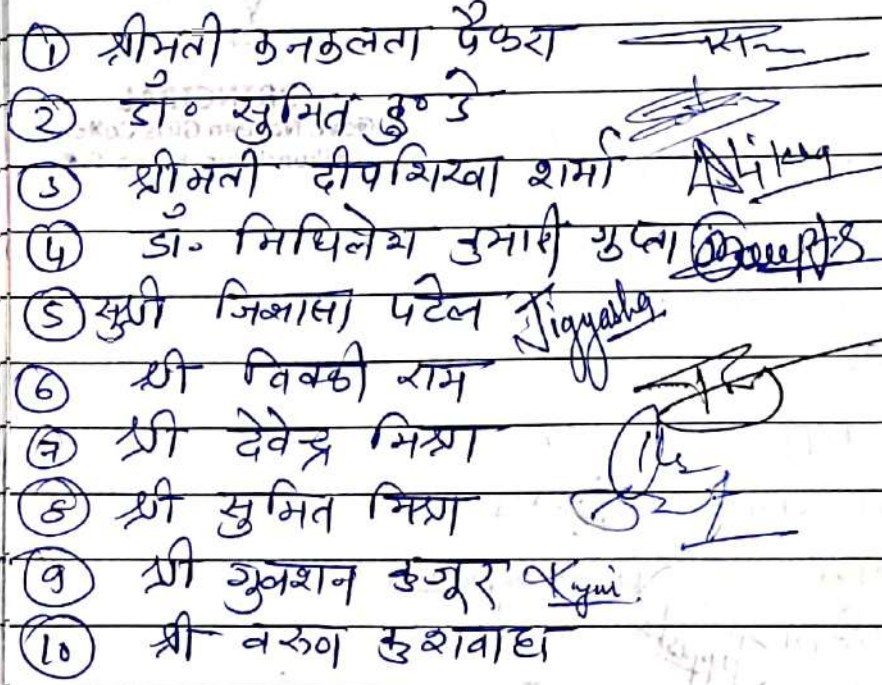 ① श्रीमती कनकलता पैकरा
② डॉ॰ सुमित कु॰ डे
③ श्रीमती दीपशिखा शर्मा
④ डॉ॰ मिथिलेश कुमारी गुप्ता
⑤ सुश्री जिज्ञासा पटेल Jigyasha
⑥ श्री विक्की राम
⑦ श्री देवेन्द्र मिश्रा
⑧ श्री सुमित मिश्रा
⑨ श्री गुलशन कुजूर Kujur
⑩ श्री वरुण कुशवाहा